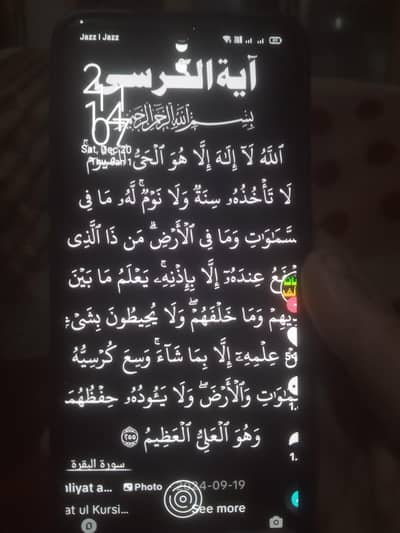 Jazz | Jazz
آية الكرسى
بِسْمِ اللَّهِ الرَّحْمَٰنِ الرَّحِيمِ
Sat, Dec 20
Thu, Jan 1
ٱللَّهُ لَآ إِلَٰهَ إِلَّا هُوَ ٱلْحَىُّ
لَا تَأْخُذُهُۥ سِنَةٌ وَلَا نَوْمٌ ۚ لَّهُۥ مَا فِى
سَّمَٰوَٰتِ وَمَا فِى ٱلْأَرْضِ ۗ مَن ذَا ٱلَّذِى
عِندَهُۥٓ إِلَّا بِإِذْنِهِۦ ۚ يَعْلَمُ مَا بَيْنَ
دِيهِمْ وَمَا خَلْفَهُمْ ۖ وَلَا يُحِيطُونَ بِشَىْءٍ
نْ عِلْمِهِۦٓ إِلَّا بِمَا شَآءَ ۚ وَسِعَ كُرْسِيُّهُ
مَٰوَٰتِ وَٱلْأَرْضَ ۖ وَلَا يَـُٔودُهُۥ حِفْظُهُمَا
وَهُوَ ٱلْعَلِىُّ ٱلْعَظِيمُ ٢٥٥
سورة البقرة
hliyat a... Photo 2024-09-19
at ul Kursi... See more